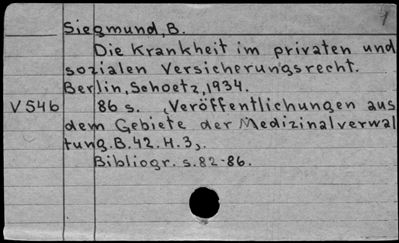 Siegmund, B.
Die Krankheit im privaten und
sozialen Versicherungsrecht.
Berlin, Schoetz, 1934.
V546 86 s. (Veröffentlichungen aus
dem Gebiete der Medizinalverwal
tung. B. 42. H. 3).
Bibliogr. s. 82-86.